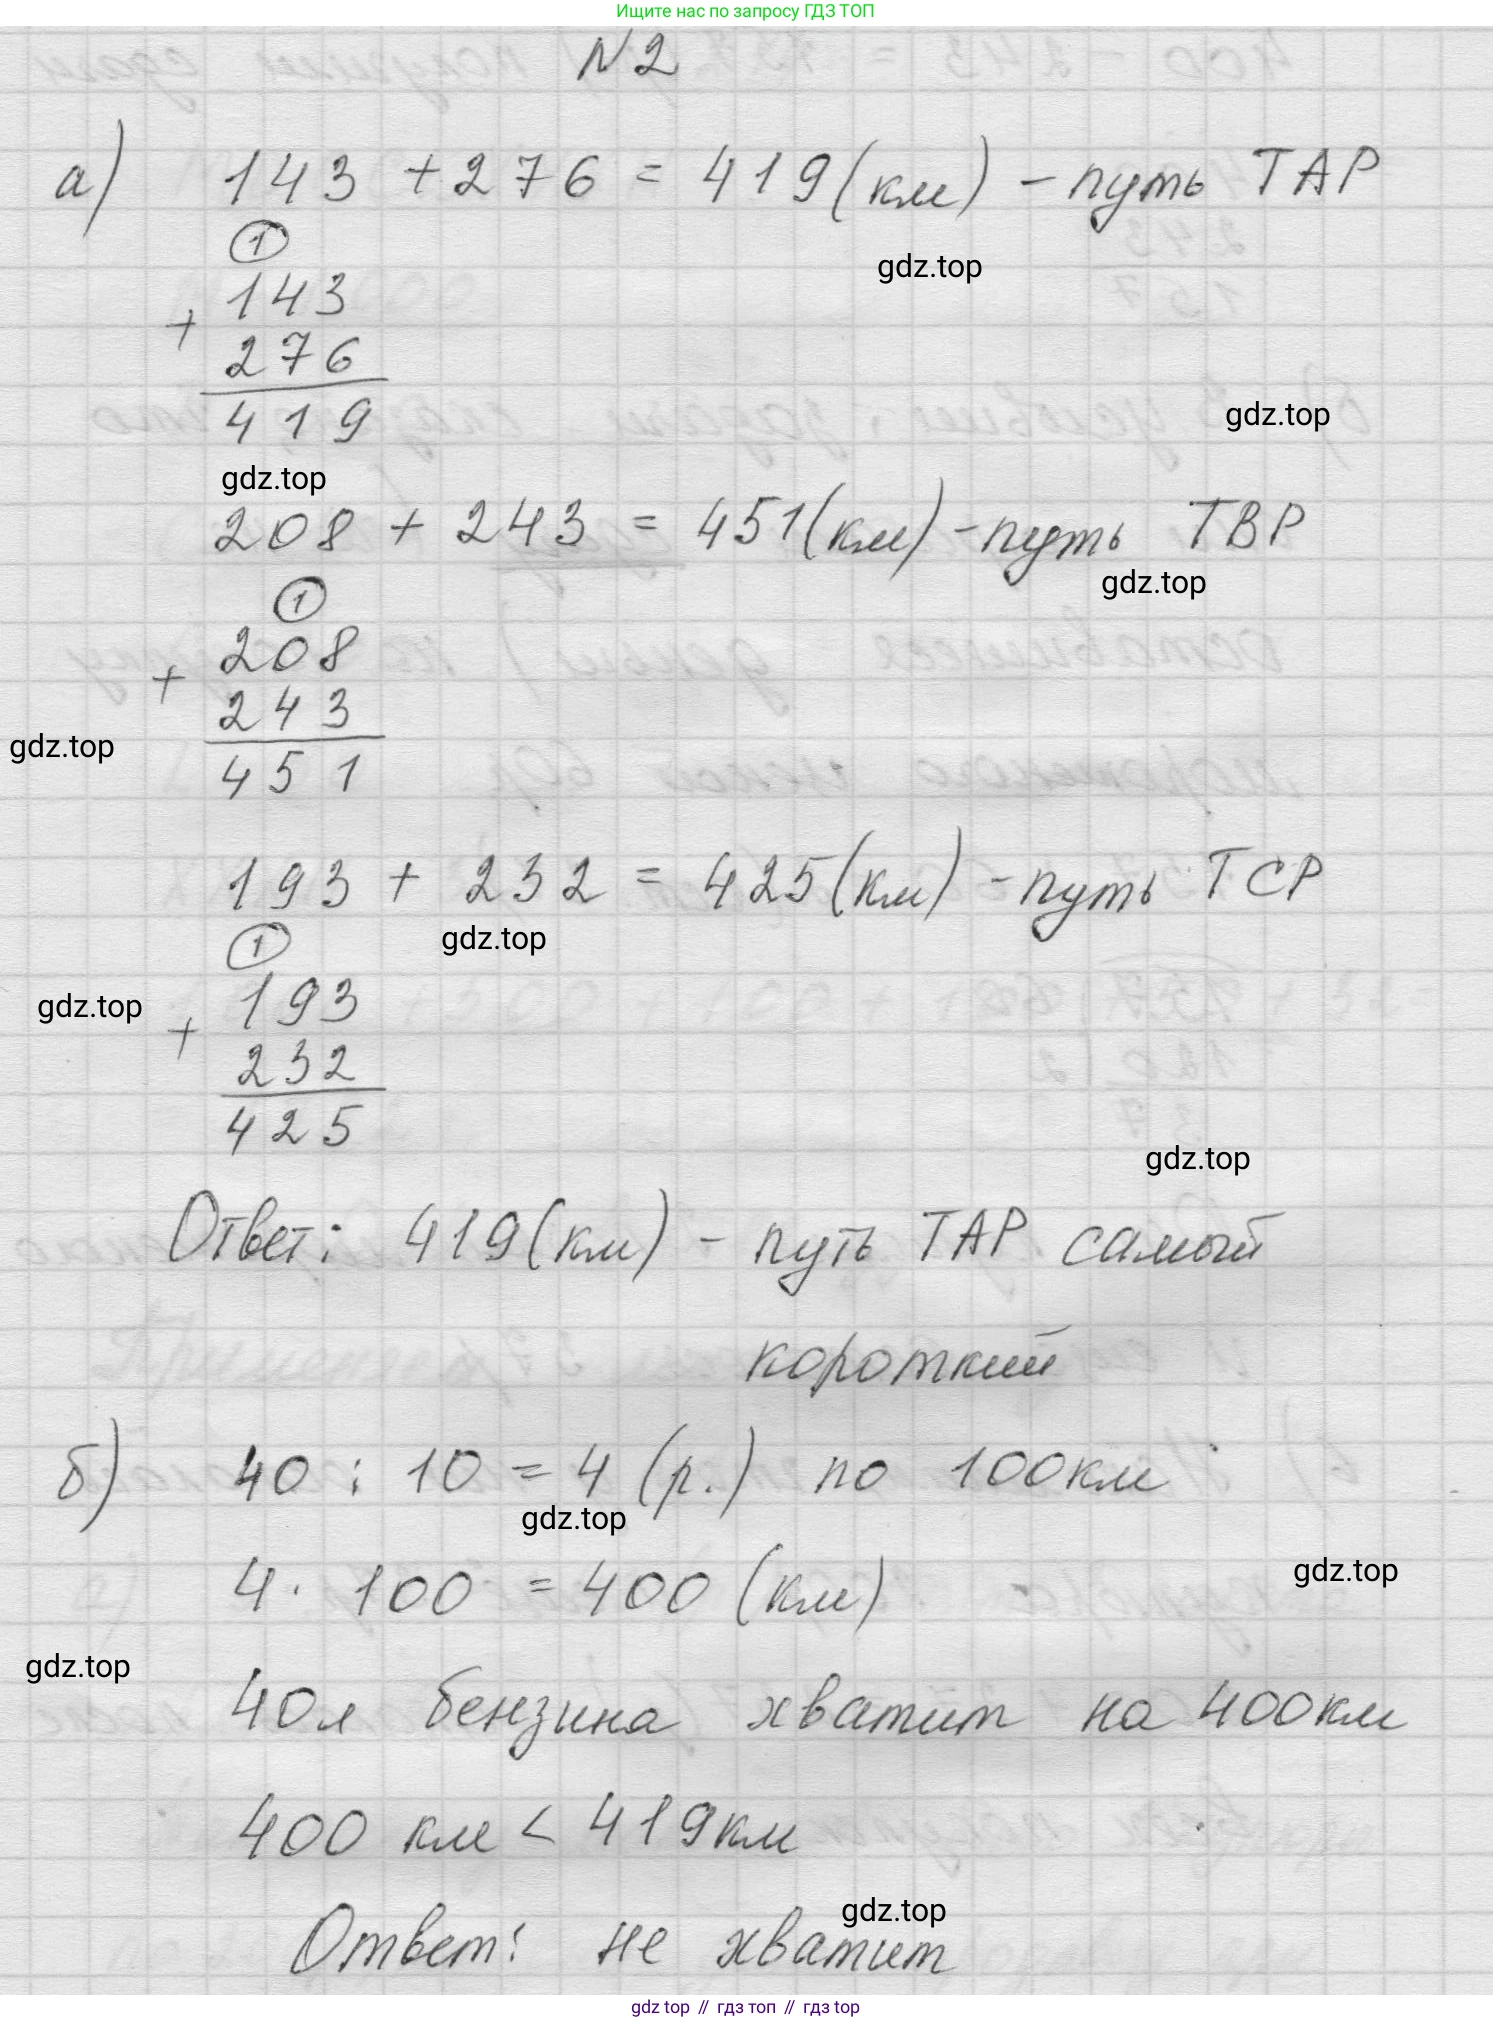 Ищите нас по запросу ГДЗ ТОП
N2
а) 143 + 276 = 419 (км) - путь ТАР
gdz.top
1
143
+
276
419
gdz.top
gdz.top
208 + 243 = 451 (км) - путь ТВР
gdz.top
1
208
+
243
gdz.top
451
193 + 232 = 425 (км) - путь ТСР
gdz.top
1
gdz.top
193
+
232
425
gdz.top
Ответ: 419 (км) - путь ТАР самый
короткий
б) 40 : 10 = 4 (р.) по 100 км
gdz.top
4 · 100 = 400 (км)
gdz.top
gdz.top
40л бензина хватит на 400 км
400 км < 419 км
gdz.top
Ответ: не хватит
gdz top // гдз топ // гдз top